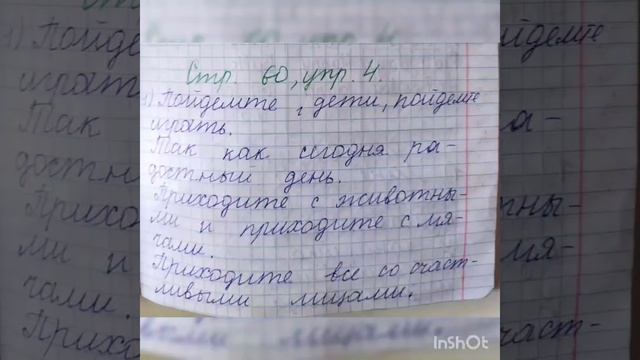 Стр. 60, упр. 4.
1) Пойдемте, дети, пойдемте
играть.
Так как сегодня ра-
достный день.
Приходите с животны-
ми и приходите с мя-
чами.
Приходите все со счаст-
ливыми лицами.
InShOt